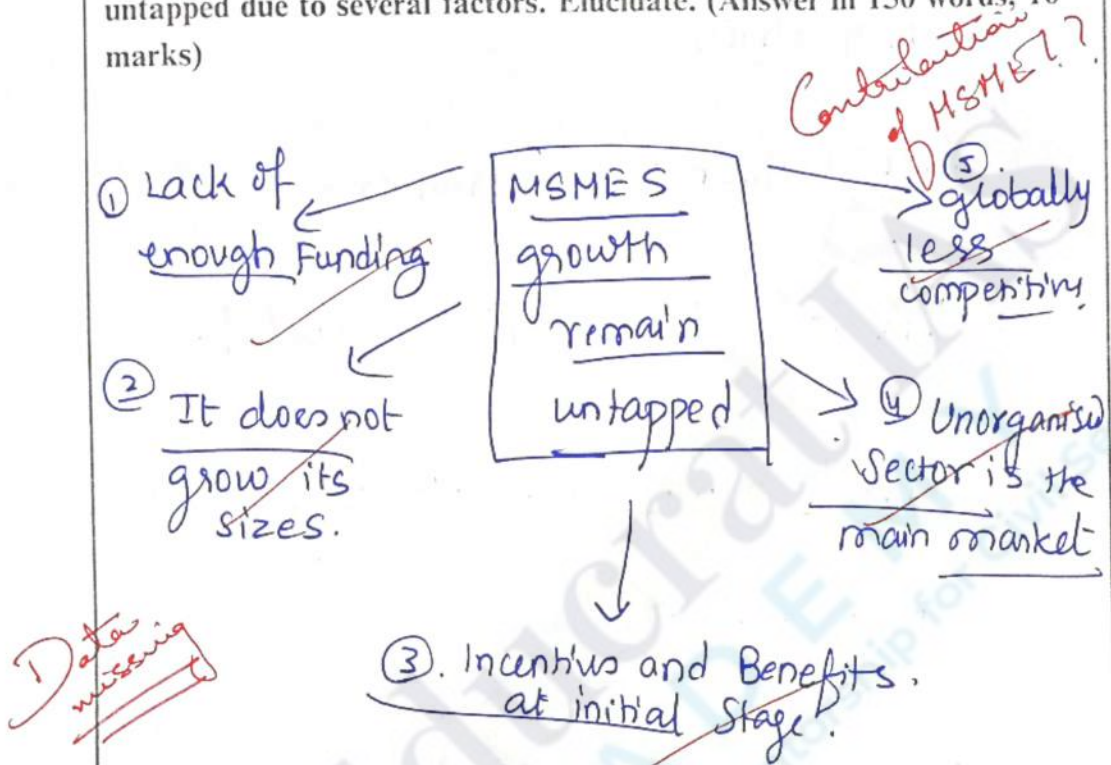 untapped due to several factors. Elucidate. (Answer in 150 words, 10
marks)
Contribution
of MSME??
① Lack of
enough Funding
MSMES
growth
remain
untapped
⑤
globally
less
competitive
② It does not
grow its
sizes.
④ Unorganised
Sector is the
main market
Data
missing
③. Incentives and Benefits.
at initial Stage.